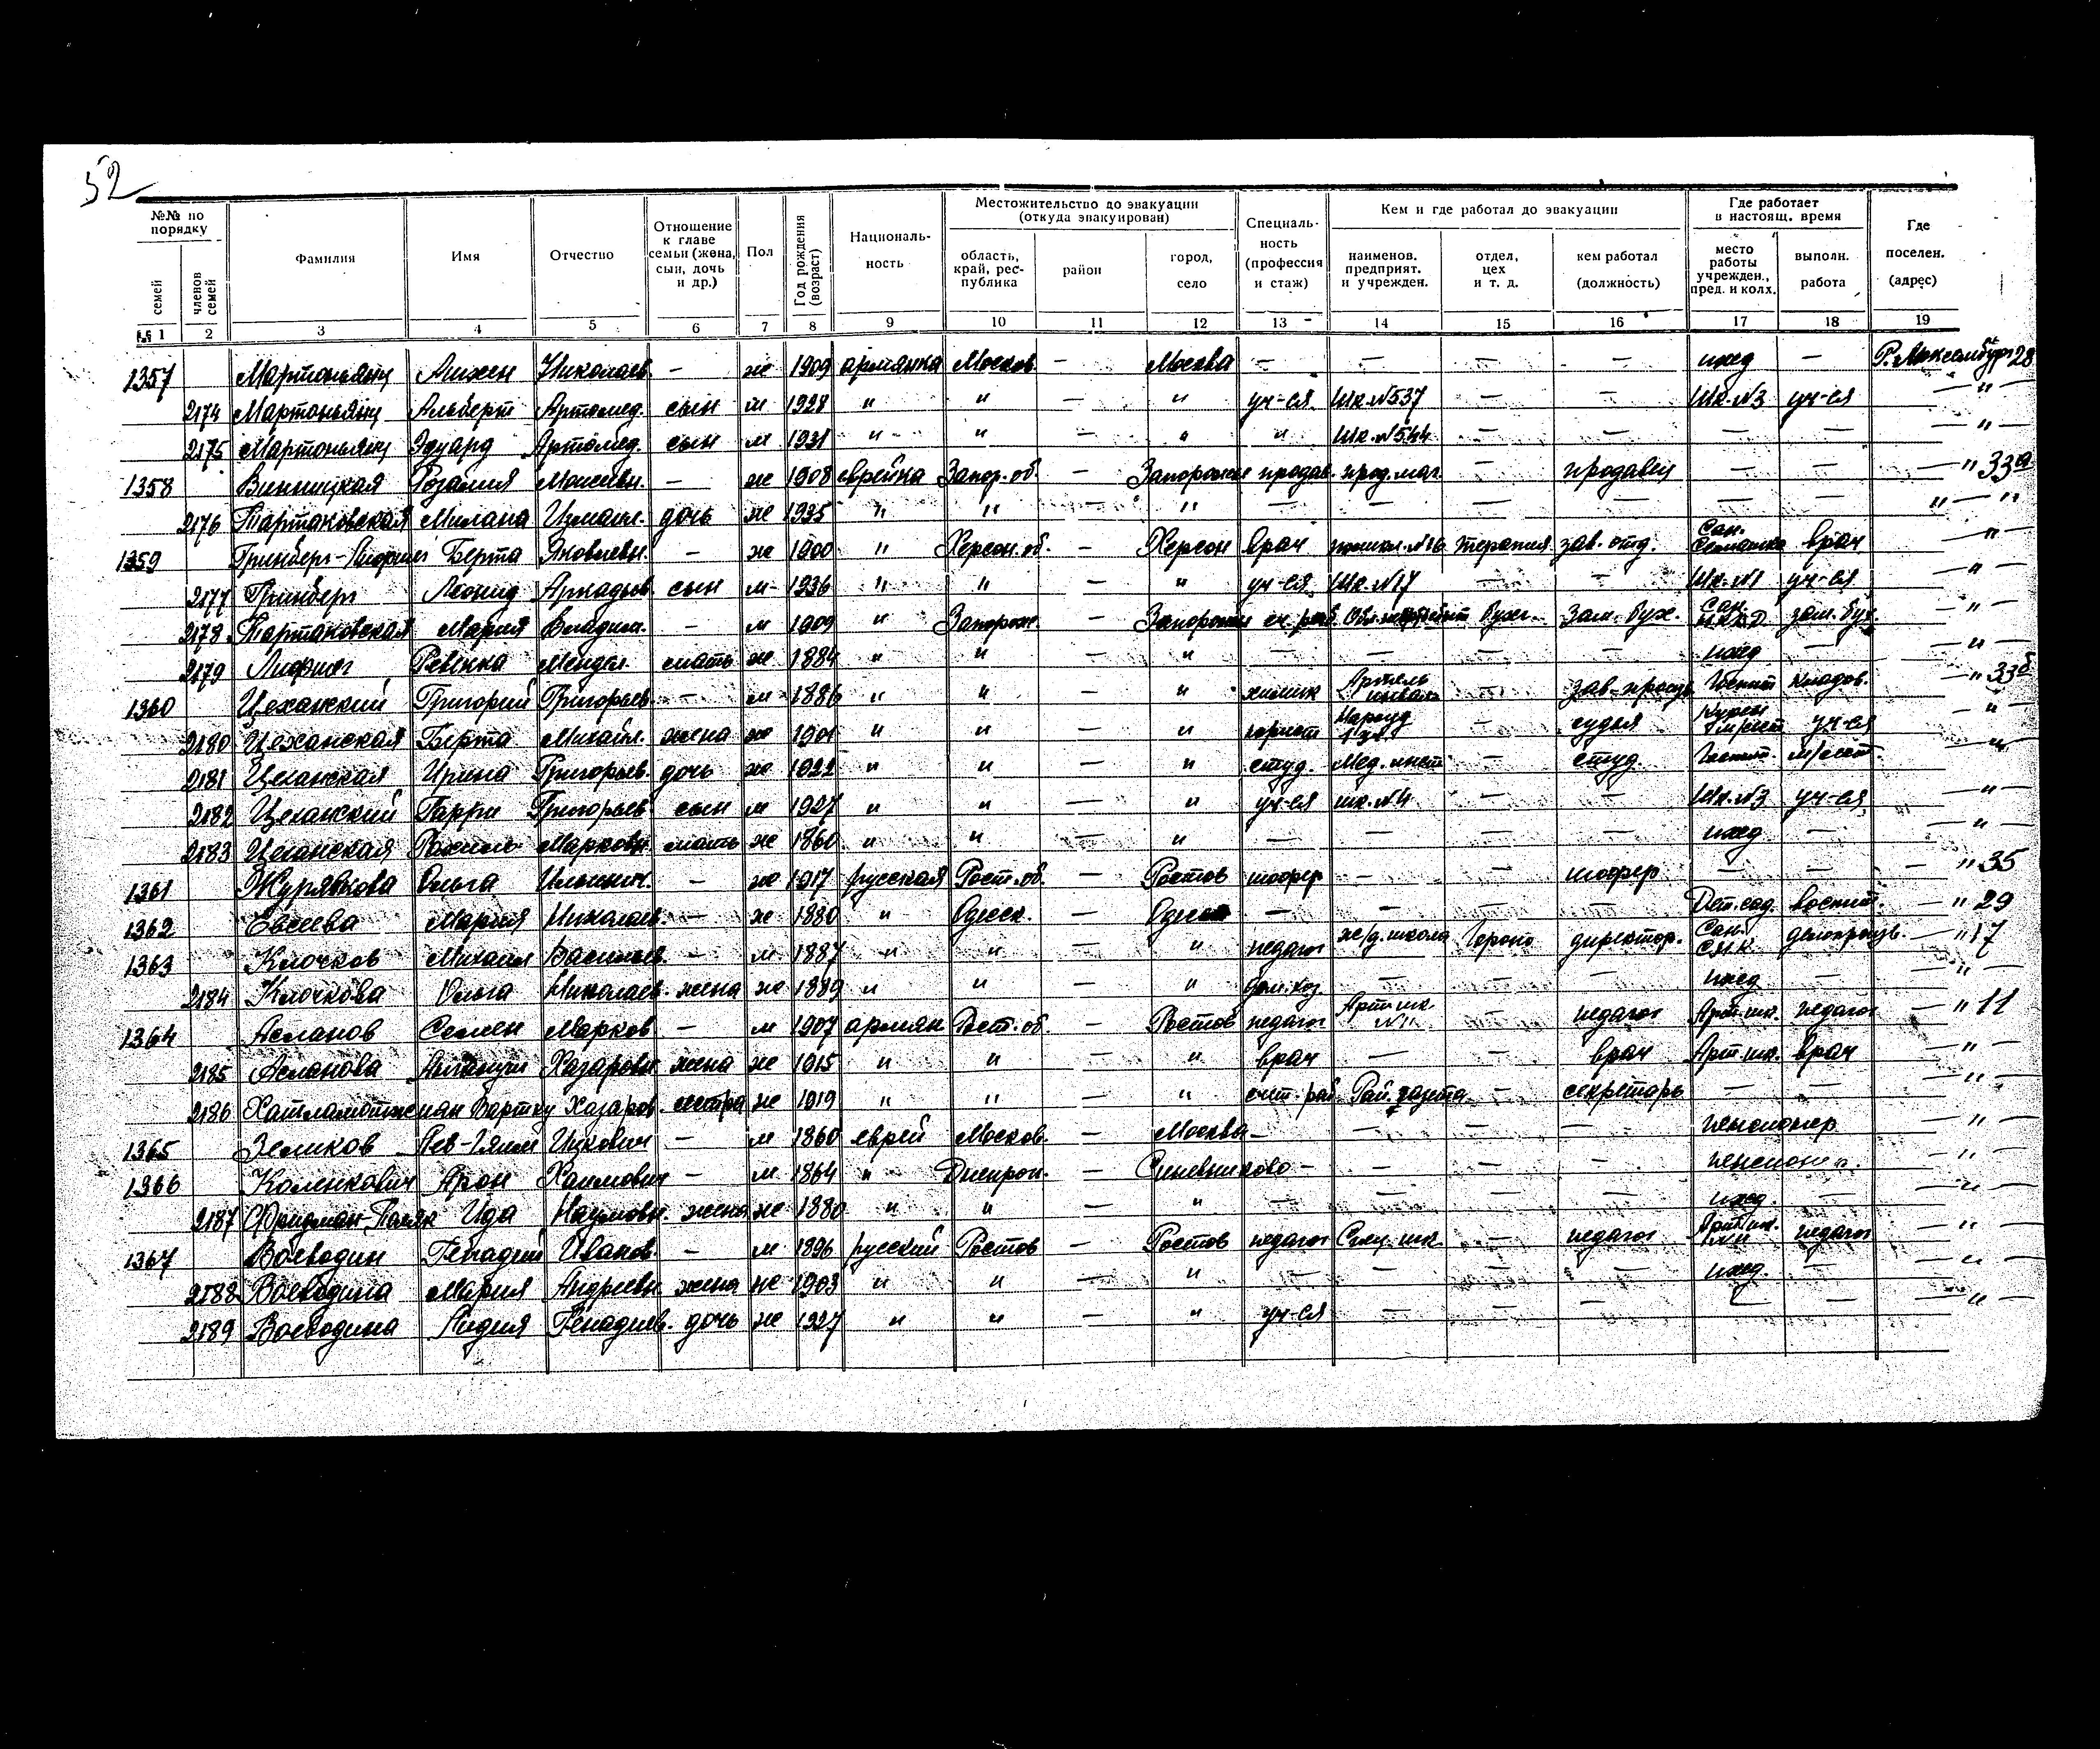 52
№№ по порядку
семей
членов семей
Фамилия
Имя
Отчество
Отношение к главе семьи (жена, сын, дочь и др.)
Пол
Год рождения (возраст)
Националь-ность
Местожительство до эвакуации (откуда эвакуирован)
область, край, рес-публика
район
город, село
Специаль-ность (профессия и стаж)
Кем и где работал до эвакуации
наименов. предприят. и учрежден.
отдел, цех и т. д.
кем работал (должность)
Где работает в настоящ. время
место работы учрежден., пред. и колх.
выполн. работа
Где поселен. (адрес)
1 2 3 4 5 6 7 8 9 10 11 12 13 14 15 16 17 18 19
1357 Мартоньянц Николаев. — ж 1909 армянка Москов. — Москва — — — — ижд — 28
2174 Мартоньянц Альберт Артамед. сын м 1928 " " — " уч-ся Шк. №537 — — Шк. №3 уч-ся — " —
2175 Мартоньянц Эдуард Артамед. сын м 1931 " " — " " Шк. №544 — — — — — " —
1358 Винницкая Розалия Моисеевн. — ж 1908 еврейка Запор. об. — Запорожье продав. прод. маг. — продавец — — — " 33а
2176 Тартаковская Милана Измаил. дочь ж 1935 " " — " — — — — — — " — "
1359 Гринберг- Берта Яковлевн. — ж 1900 " Херсон. об. — Херсон врач №16 терапия зав. отд. Сан. Семашко врач — " —
2177 Гринберг Леонид Аркадьев. сын м 1936 " " — " уч-ся Шк. №17 — — Шк. №1 уч-ся — " —
2178 Тартаковская Мария Владим. — м 1909 " Запорож. — Запорожье бухг. Зам. бух. Сан. зам. бух. — " —
2179 Ревекка Мендел. мать ж 1884 " " — " — — — — ижд — — " —
1360 Цеханский Григорий Григорьев. — м 1886 " " — " химик Артель — Госпит кладов. — " 33б
2180 Цеханская Берта Михайл. жена ж 1901 " " — " юрист Нарсуд — судья уч-ся — " —
2181 Цеханская Ирина Григорьев. дочь ж 1922 " " — " студ. Мед. инст — студ. Госпит. м/сест. — " —
2182 Цеханский Гарри Григорьев. сын м 1927 " " — " уч-ся шк. №4 — — Шк. №3 уч-ся — " —
2183 Цеханская Рахиль Марковн. мать ж 1860 " " — " — — — — ижд — — " —
1361 Журавкова Ольга Ильинич. — ж 1917 русская Рост. об. — Ростов шофер — — шофер — — — " 35
1362 Евсеева Мария Николаев. — ж 1880 " Одесск. — Одесса — — — — Дет. сад. воспит. — " 29
1363 Клочков Михаил Васильев. — м 1887 " " — " педагог ж/д. школа Гороно директор. Сан. делопроизв. — " 17
2184 Клочкова Ольга Николаев. жена ж 1889 " " — " дом. хоз. — — — ижд — — " —
1364 Асланов Семен Марков. — м 1907 армян Рост. об. — Ростов педагог Арт. шк. — педагог Арт. шк. педагог — " 11
2185 Асланова Хазаровн жена ж 1915 " " — " врач — — врач Арт. шк. врач — " —
2186 Хазаров. сестра ж 1919 " " — " счет. раб. Рай. газета — секретарь — — — " —
1365 Зеликов Ицкович — м 1860 еврей Москов. — Москва — — — — пенсионер — " —
1366 Каленкович Арон Хаимович — м 1864 " Днепроп. — Синельниково — — — — пенсион — " —
2187 Фридман Ида Наумовн. жена ж 1880 " " — " — — — — ижд. — — " —
1367 Воеводин Генадий Иванов. — м 1896 русский Ростов — Ростов педагог Спец. шк. — педагог Арт. шк. педагог — " —
2188 Воеводина Мария Андреевн. жена ж 1903 " " — " — — — — ижд. — — " —
2189 Воеводина Лидия Генадиев. дочь ж 1927 " " — " уч-ся — — — — — — " —